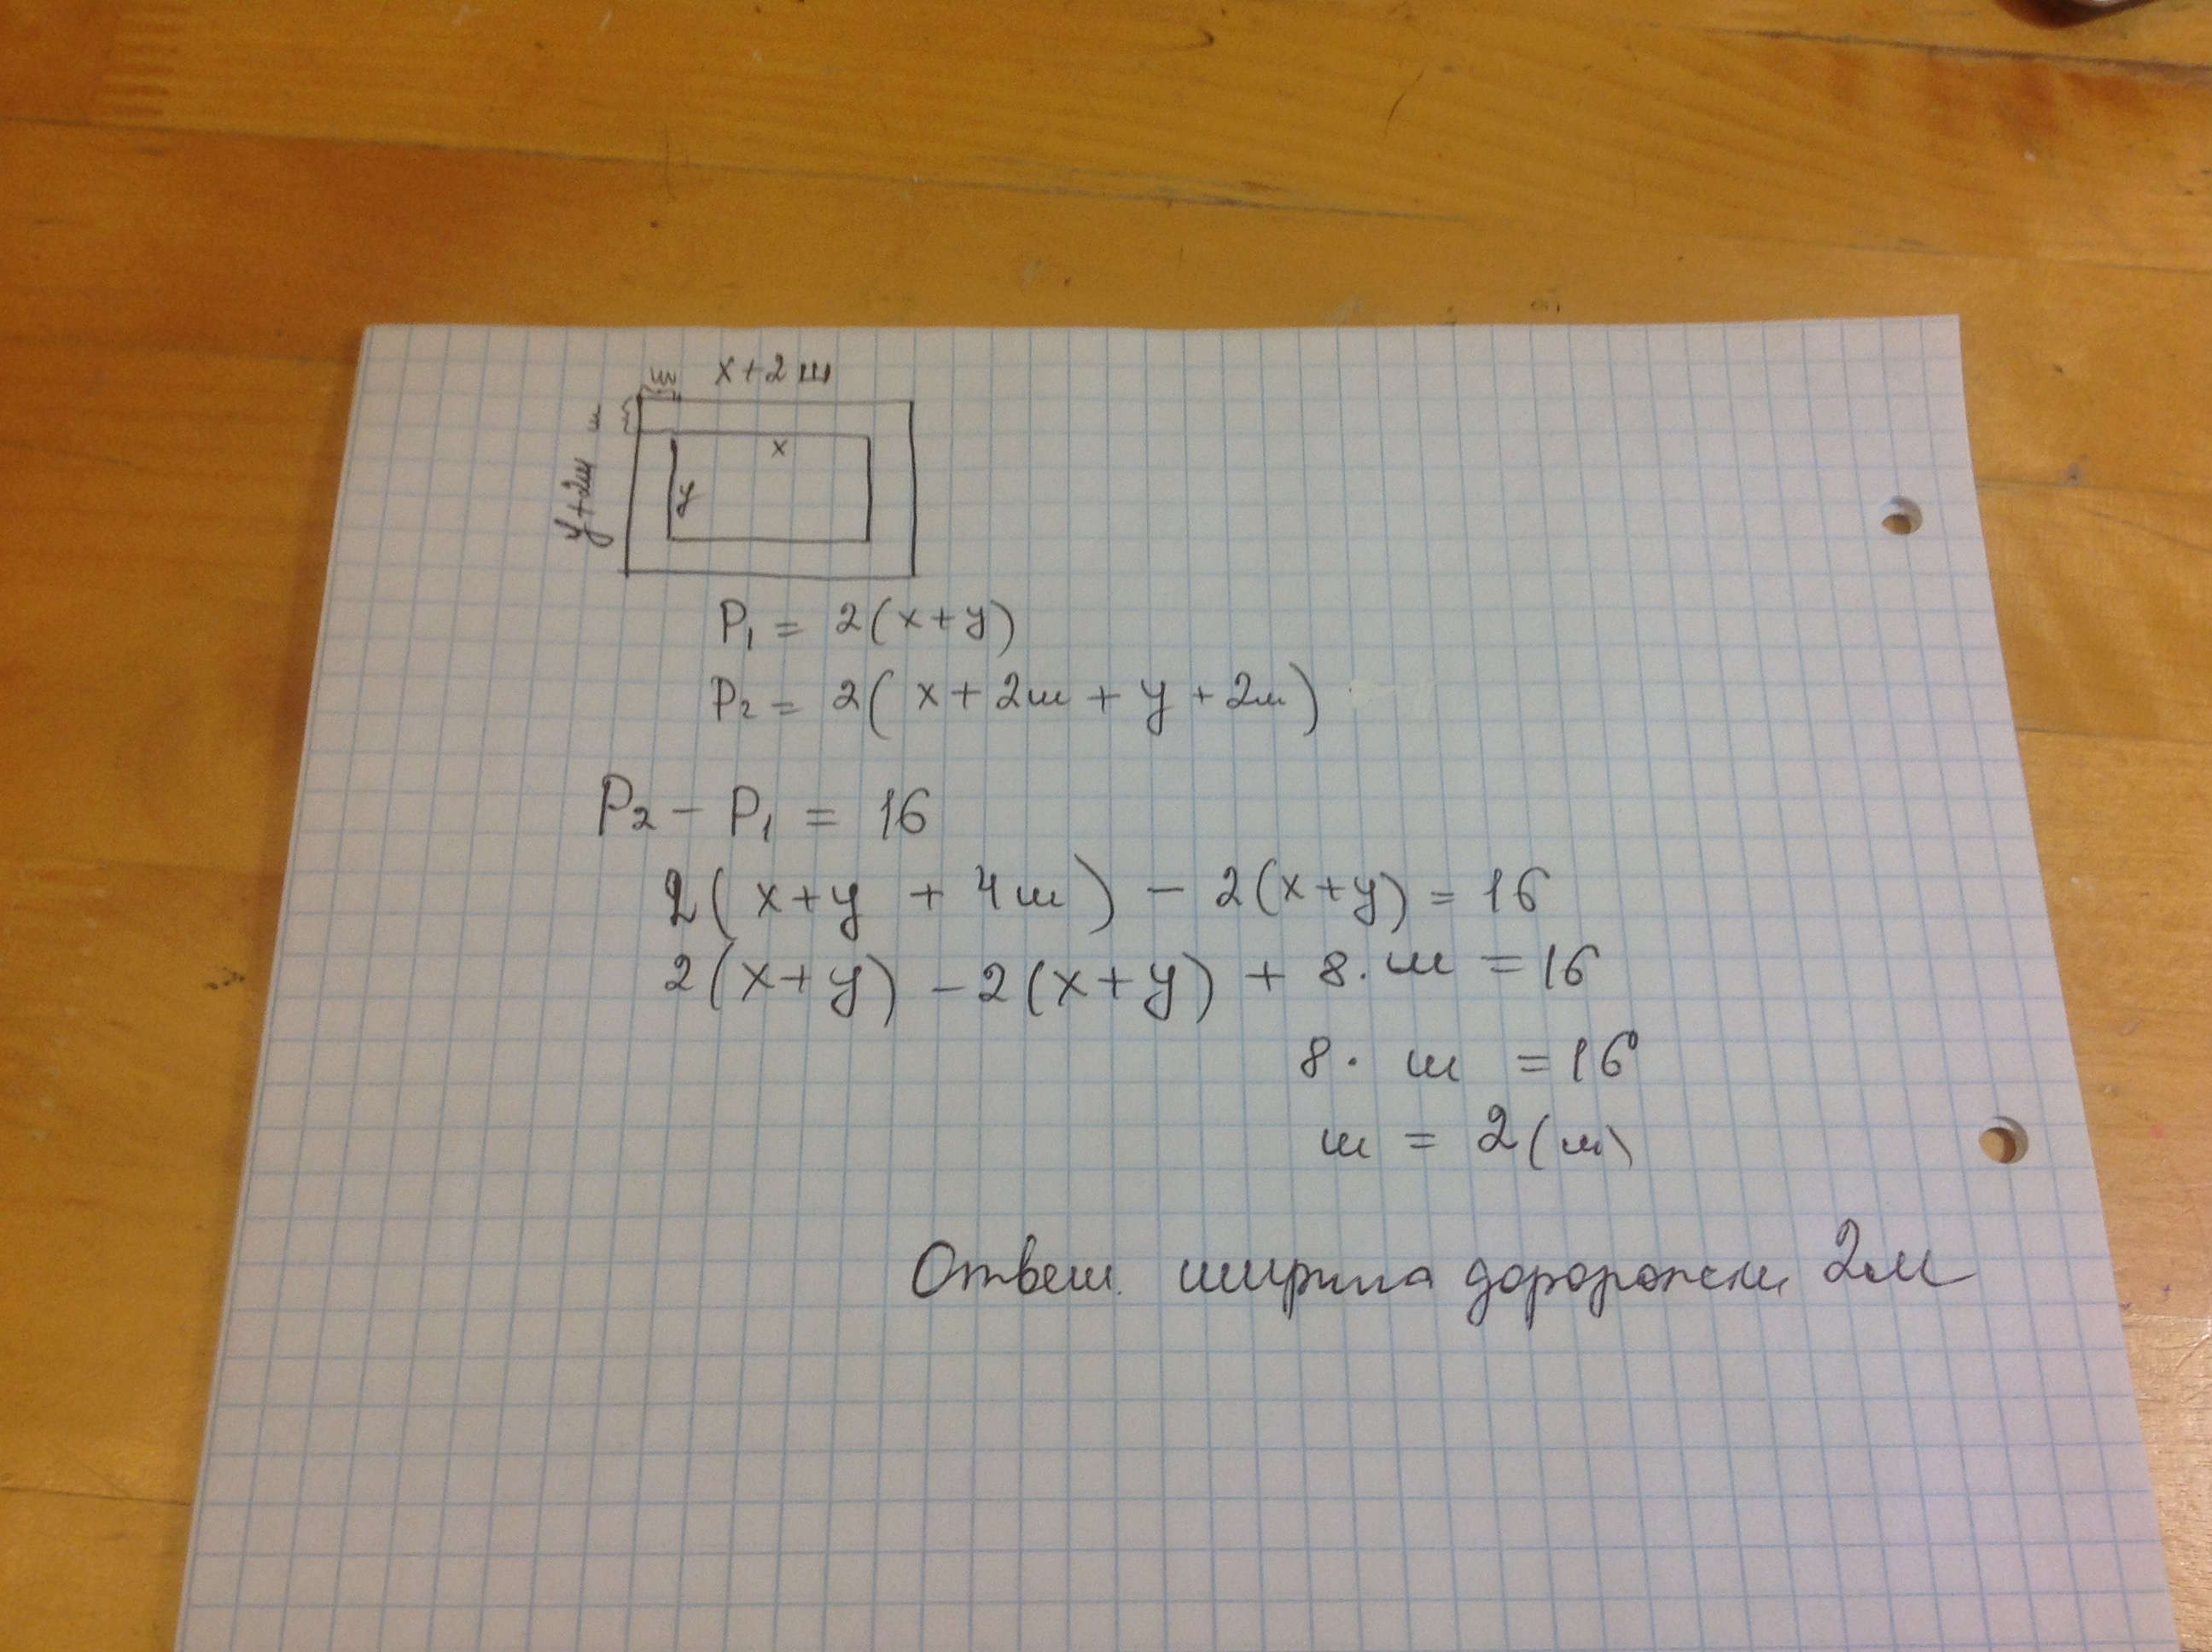 x+2ш
ш
ш
x
y
y+2ш
P₁ = 2(x+y)
P₂ = 2( x+2ш + y +2ш)
P₂ - P₁ = 16
2( x+y + 4ш) - 2(x+y) = 16
2(x+y) -2(x+y) + 8·ш =16
8· ш =16
ш = 2(м)
Ответ. ширина доророжки 2м